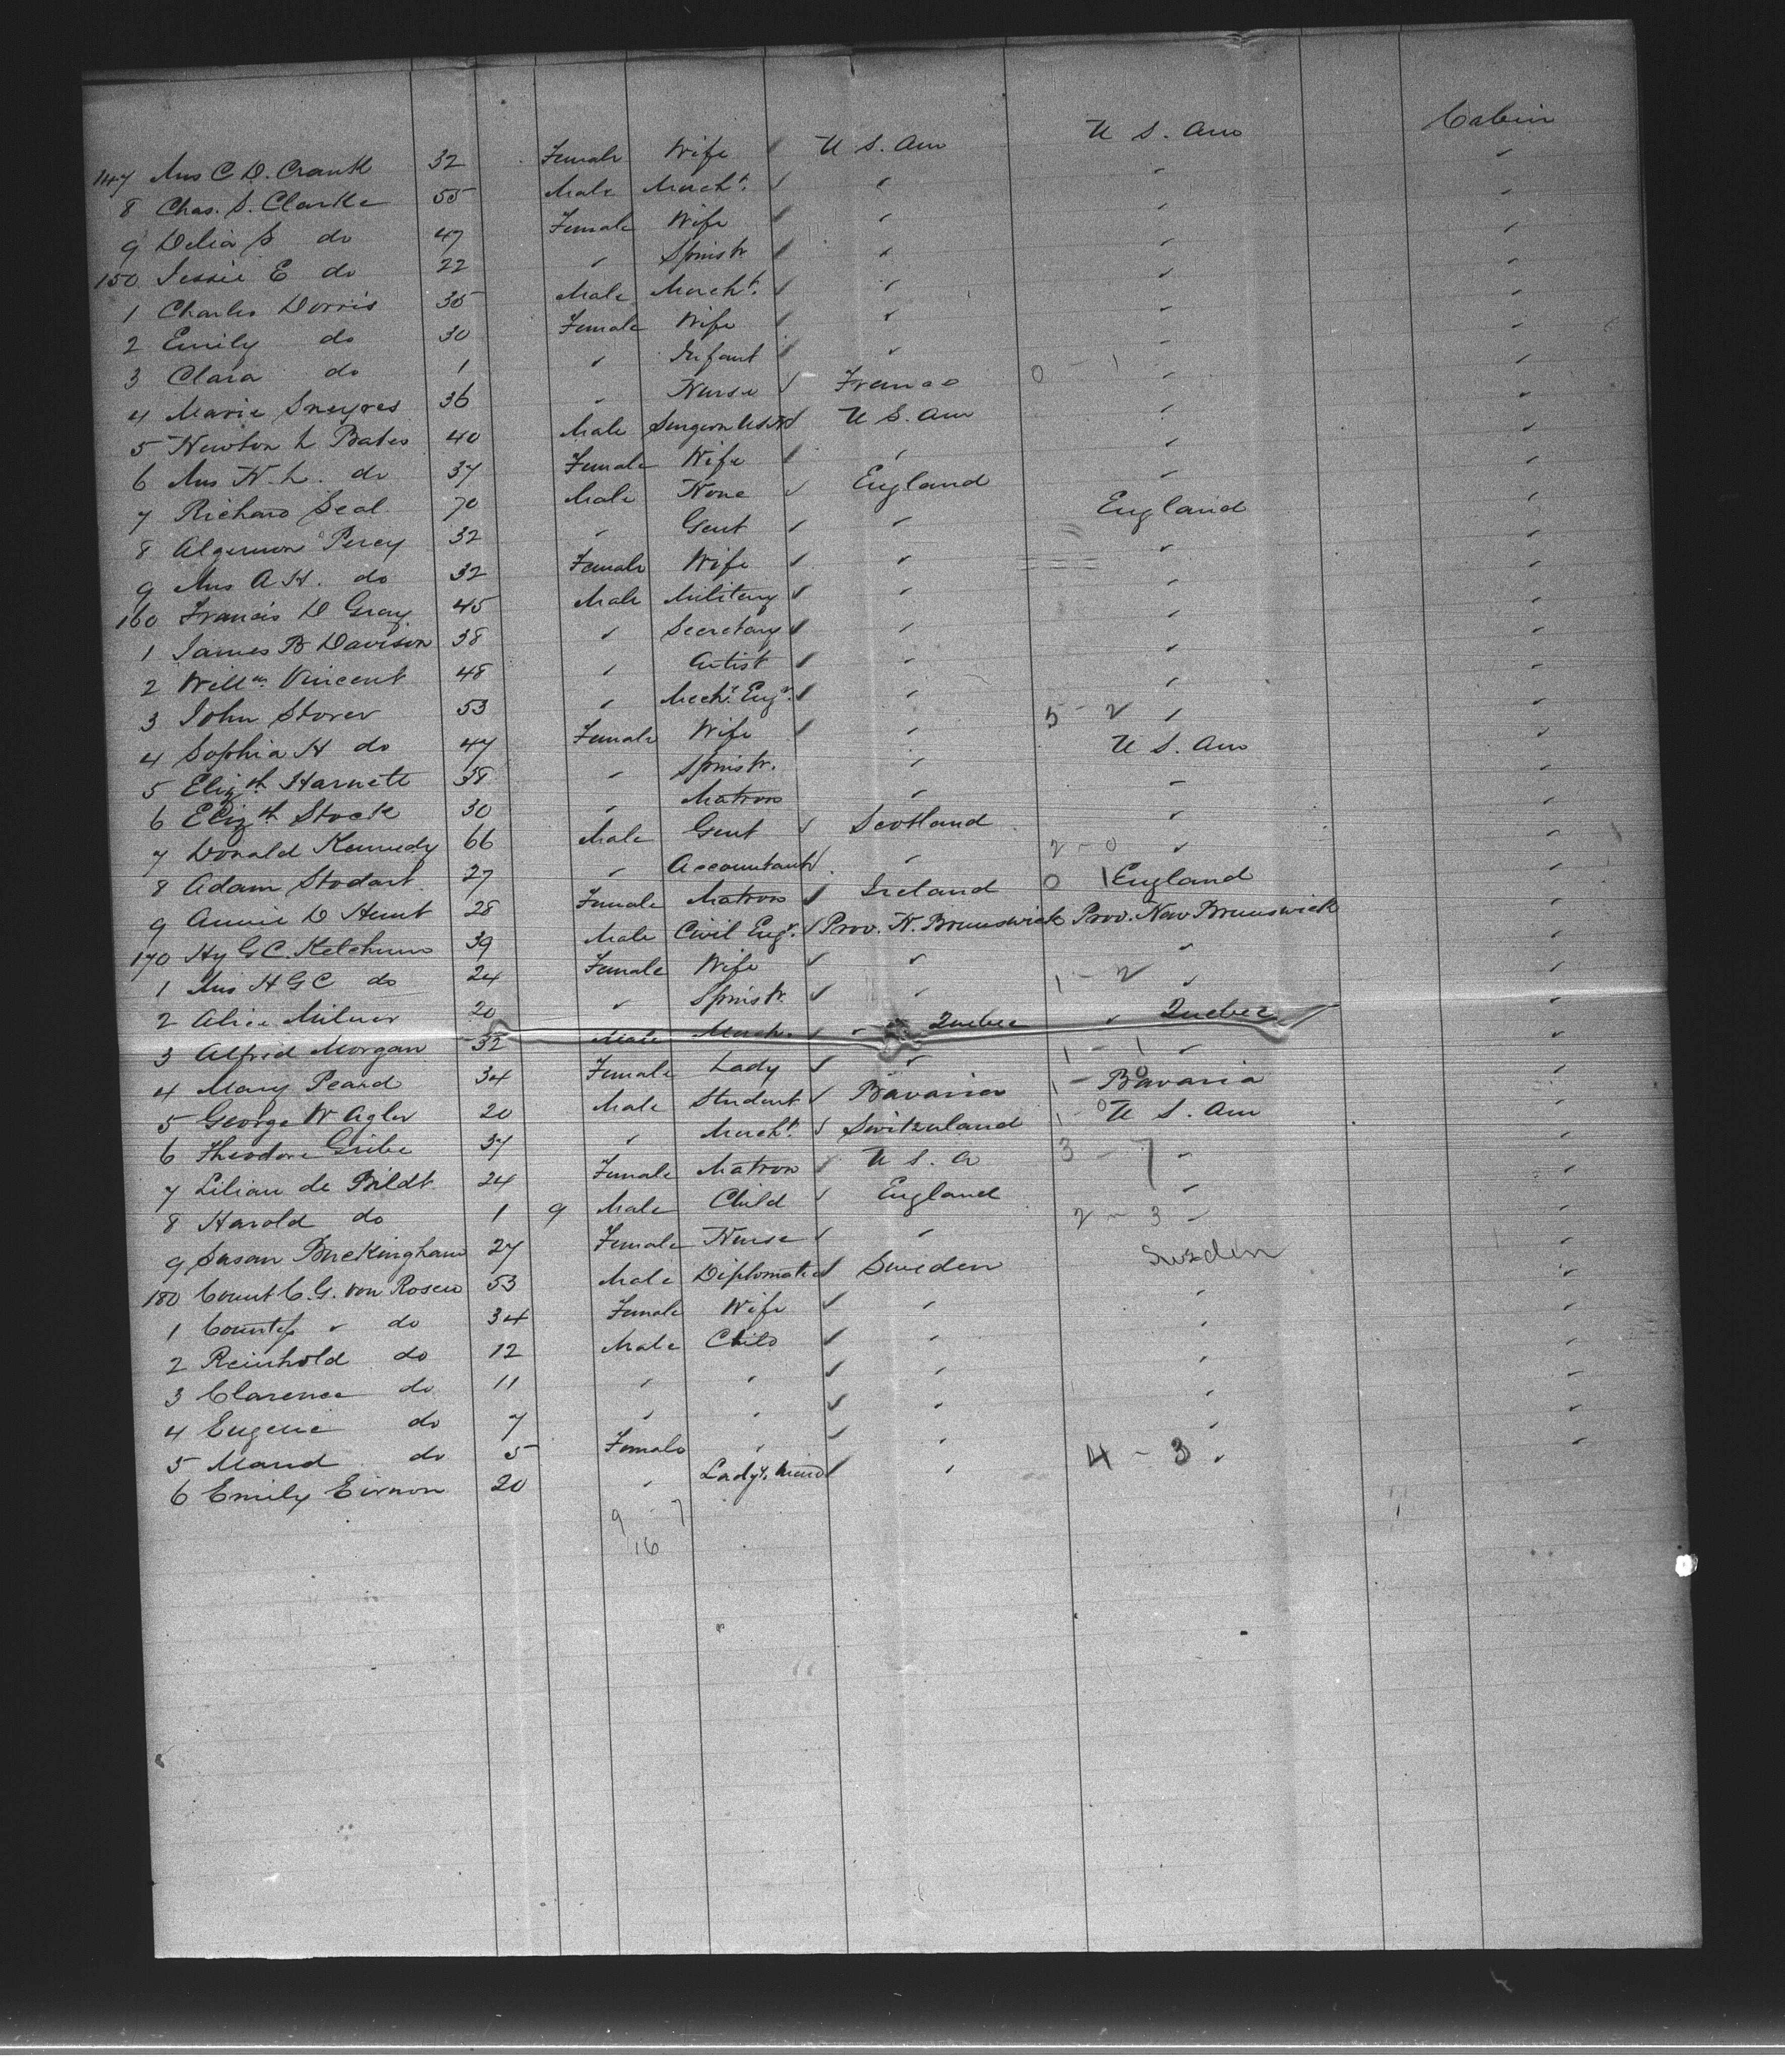 147 Mrs C D. Crank 32 Female Wife U S. Am U S. Am Cabin
8 Chas. S. Clarke 55 Male Mercht. " " "
9 Delia S do 47 Female Wife " " "
150 Jessie E do 22 " Spinstr " " "
1 Charles Dorris 35 Male Mercht. " " "
2 Emily do 30 Female Wife " " "
3 Clara do 1 " Infant " " "
4 Marie 36 " Nurse France 0 - 1 " "
5 Newton L Bates 40 Male Surgeon USN U S. Am " "
6 Mrs N. L. do 37 Female Wife " " "
7 Richard Seal 70 Male None England " "
8 Algernon Percy 32 " Gent " England "
9 Mrs A H. do 32 Female Wife " " "
160 Francis D Gray 45 Male Military " " "
1 James B Davison 38 " Secretary " " "
2 Willm. Vincent 48 " Artist " " "
3 John Storer 53 " Mechl. Engr. " " "
4 Sophia H do 47 Female Wife " 5 - 2 " "
5 Elizth. Harnett 38 " Spinstr. " U S. Am "
6 Elizth Stock 30 " Matron " " "
7 Donald Kennedy 66 Male Gent Scotland " "
8 Adam Stodart 27 " Accountant " 2 - 0 " "
9 Annie D Hunt 28 Female Matron Ireland 0 1 England "
170 Hy G C. Ketchum 39 Male Civil Engr. Prov. N. Brunswick Prov. New Brunswick "
1 Mrs H G C do 24 Female Wife " " "
2 Alice Milner 20 " Spinstr. " 1 - 2 " "
3 Alfred Morgan 32 Male Mercht. " Quebec " Quebec "
4 Mary Peard 34 Female Lady " 1 - 1 " "
5 George W Agler 20 Male Student Bavaria 1 - 0 Bavaria "
6 Theodore Gribe 37 " Mercht. Switzerland 1 - 0 U S. Am "
7 Lilian de Bildt 24 Female Matron U S. A 3 - 7 " "
8 Harold do 1 9 Male Child England " "
9 Susan Buckingham 27 Female Nurse " 2 - 3 " "
180 Count C. G. von Rosen 53 Male Diplomatic Sweden Sweden "
1 Countess " do 34 Female Wife " " "
2 Reinhold do 12 Male Child " " "
3 Clarence do 11 " " " " "
4 Eugene do 7 " " " " "
5 Maud do 5 Female " " " "
6 Emily 20 " Lady's Maid " 4 - 3 " "
9 - 7
16